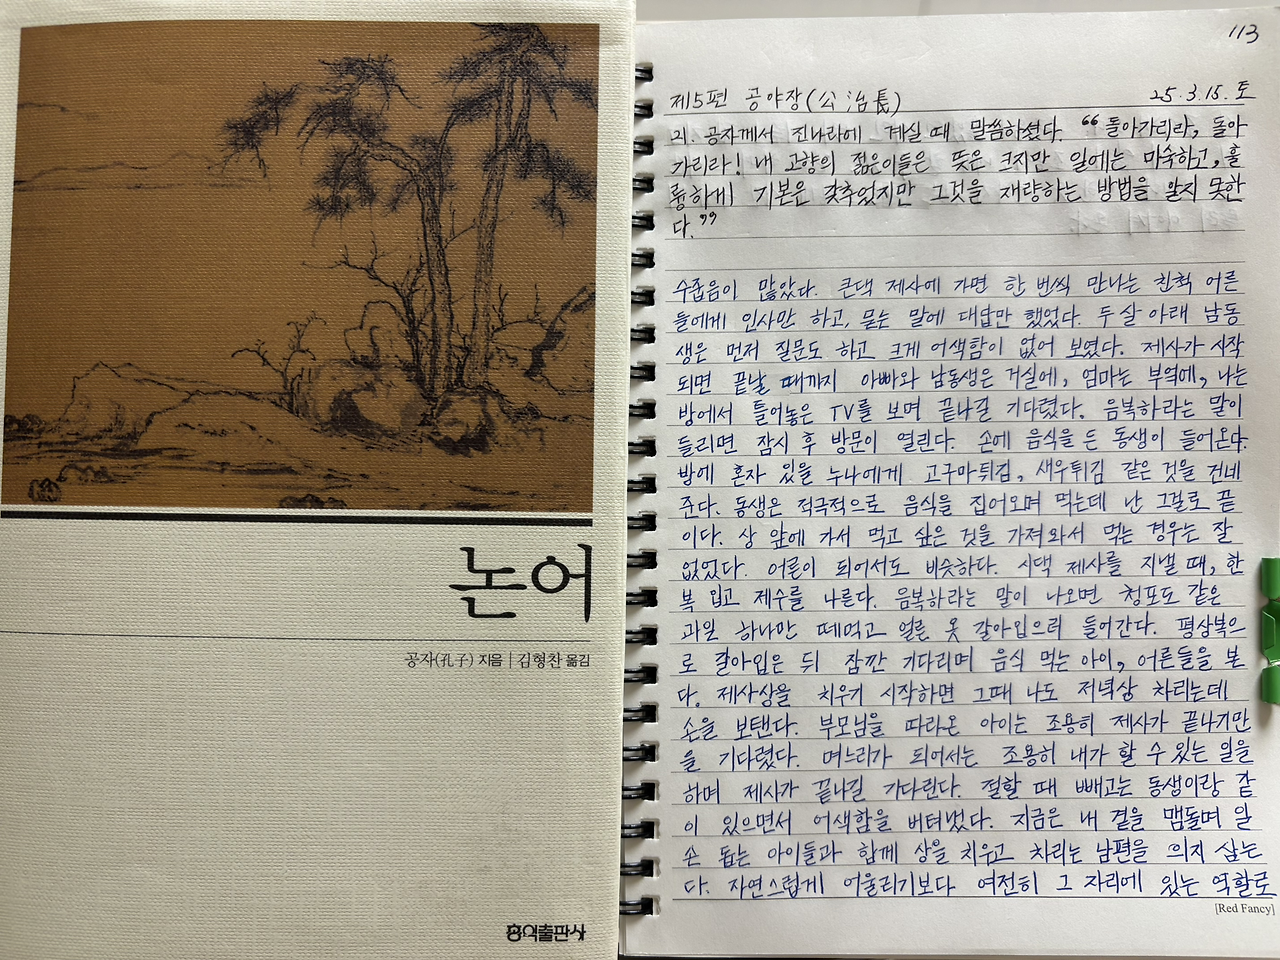 논어
공자(孔子) 지음 | 김형찬 옮김
홍익출판사
113
제5편 공야장(公冶長) 25.3.15.토
21. 공자께서 진나라에 계실 때 말씀하셨다. “돌아가리라, 돌아
가리라! 내 고향의 젊은이들은 뜻은 크지만 일에는 미숙하고, 훌
륭하게 기본은 갖추었지만 그것을 재량하는 방법을 알지 못한
다.”
수줍음이 많았다. 큰댁 제사에 가면 한 번씩 만나는 친척 어른
들에게 인사만 하고, 묻는 말에 대답만 했었다. 두 살 아래 남동
생은 먼저 질문도 하고 크게 어색함이 없어 보였다. 제사가 시작
되면 끝날 때까지 아빠와 남동생은 거실에, 엄마는 부엌에, 나는
방에서 틀어놓은 TV를 보며 끝나길 기다렸다. 음복하라는 말이
들리면 잠시 후 방문이 열린다. 손에 음식을 든 동생이 들어온다.
방에 혼자 있을 누나에게 고구마튀김, 새우튀김 같은 것을 건네
준다. 동생은 적극적으로 음식을 집어오며 먹는데 난 그걸로 끝
이다. 상 앞에 가서 먹고 싶은 것을 가져와서 먹는 경우는 잘
없었다. 어른이 되어서도 비슷하다. 시댁 제사를 지낼 때, 한
복 입고 제수를 나른다. 음복하라는 말이 나오면 청포도 같은
과일 하나만 떼먹고 얼른 옷 갈아입으러 들어간다. 평상복으
로 갈아입은 뒤 잠깐 기다리며 음식 먹는 아이, 어른들을 본
다. 제사상을 치우기 시작하면 그때 나도 저녁상 차리는데
손을 보탠다. 부모님을 따라온 아이는 조용히 제사가 끝나기만
을 기다렸다. 며느리가 되어서는 조용히 내가 할 수 있는 일을
하며 제사가 끝나길 기다린다. 절할 때 빼고는 동생이랑 같
이 있으면서 어색함을 버텨냈다. 지금은 내 곁을 맴돌며 일
손 돕는 아이들과 함께 상을 치우고 차리는 남편을 의지 삼는
다. 자연스럽게 어울리기보다 여전히 그 자리에 있는 역할로
[Red Fancy]